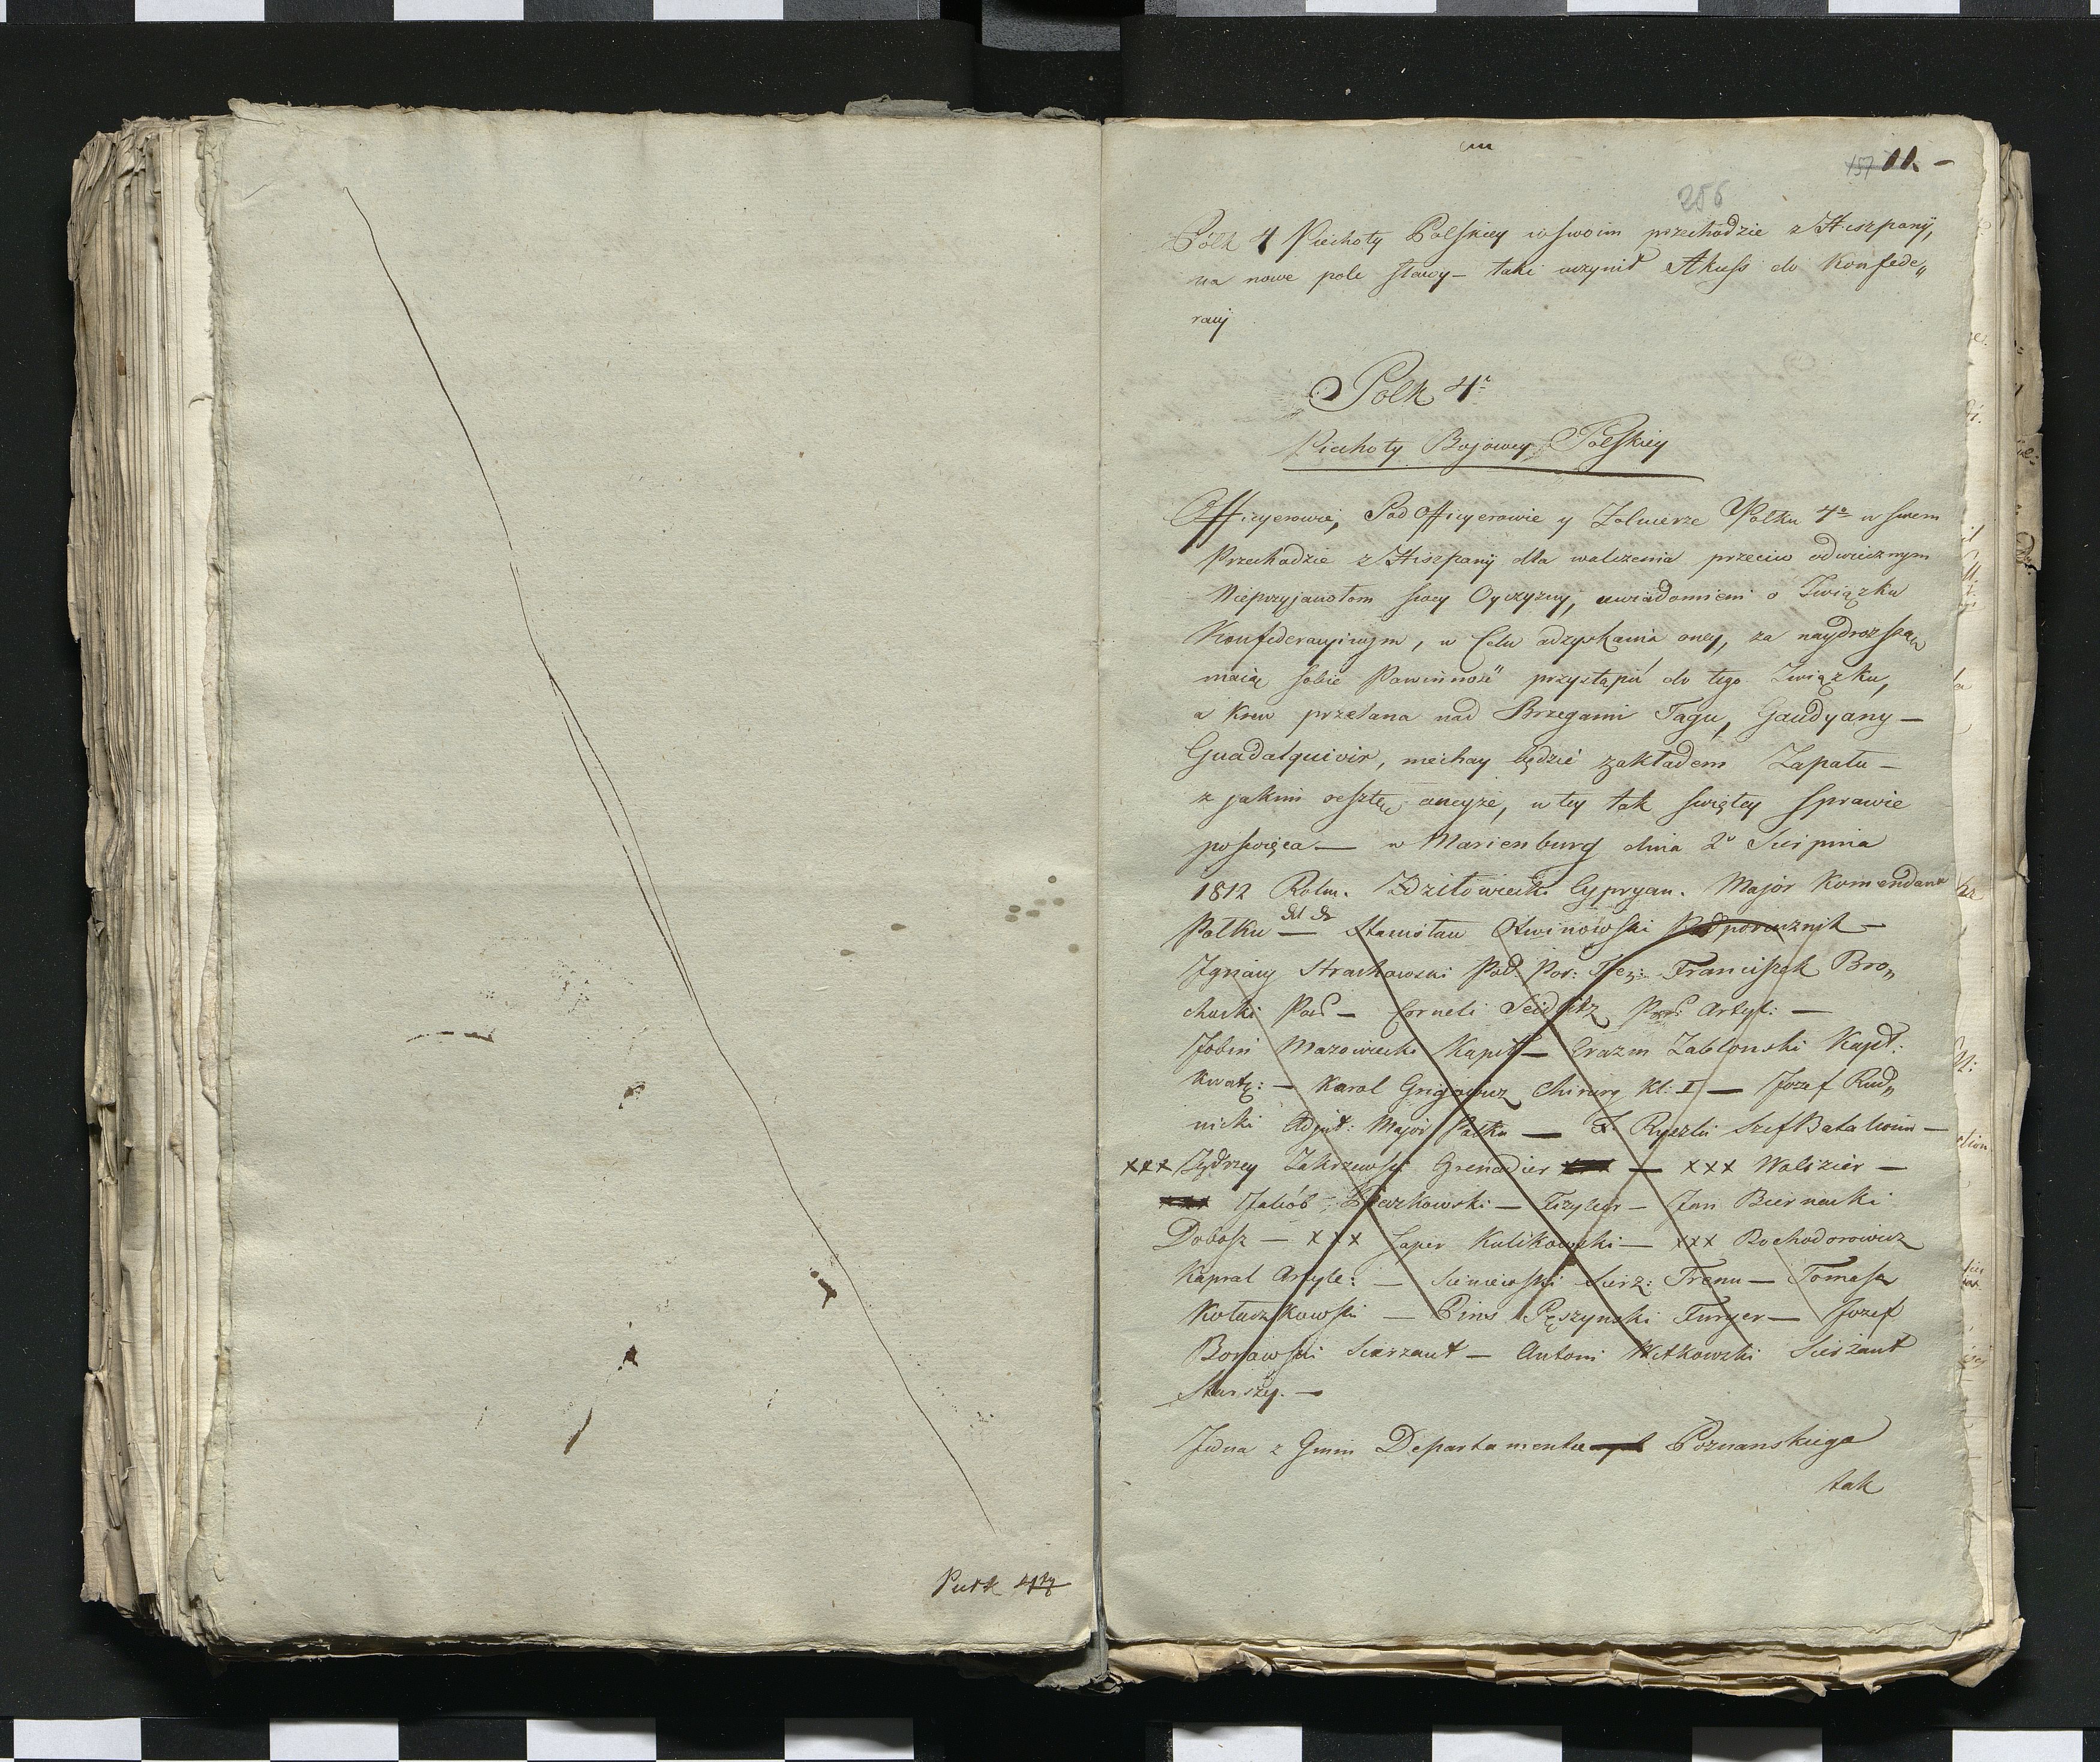 Pułk 4ty
157 11. -
256
Połk 4 Piechoty Polskiey w swoim przechodzie z Hiszpanij,
na nowe pole sławy – taki uczynił Akuss do Konfede„
racij
Połk 4.
Piechoty Bojowey Polskiey
Officyerowie, Pod Officyerowie y Zołnierze Połku 4o w swem
Przechodzie z Hiszpanij dla walczenia przeciw odwiecznym
Nieprzyjaciołom swey Oyczyzny, uwiadomieni o Związku
Konfederacyinym, w Celu odzyskania oney, za naydroższą
maią sobie Powinność przystąpić do tego Związku,
a krew przelana nad Brzegami Tagu, Gaudyany –
Guadalquivir, niechay będzie zakładem Zapału –
z jakim resztę oneyże, w tey tak swiętey sprawie
poswięca – w Marienburg dnia 2o Sierpnia
1812 Roku. Zdzitowiecki Cypryan. Major Komendant
Połku – Stanisław Oswinowski Podporucznik –
Ignacy Strachowski Pod. Por: Franciszek Bro„
chocki Por – Corneli Seidlitz Por: Artyl: –
Mazowiecki Kapit – Erazm Zabłonski Kapt:
Kwat: – Karol Chirurg Kl: I – Jozef Rud„
nicki Adjut: Major Połku – F. Szef Batalionu –
xxx Jędrzey Zakrzewski Grenadier – xxx Wolizier –
Jakób – Fizylier – Jan Biernacki
Dobosz – xxx Saper Kulikowski – xxx Bochodorowicz
Kapral Artyle: – Sierz: Trenu – Tomasz
Kołuczkowski – Pius Furyer – Jozef
Borawski Sierzant – Antoni Witkowski Sierżant
Starszy. –
Jedna z Gmin Departamentu Poznanskiego
tak